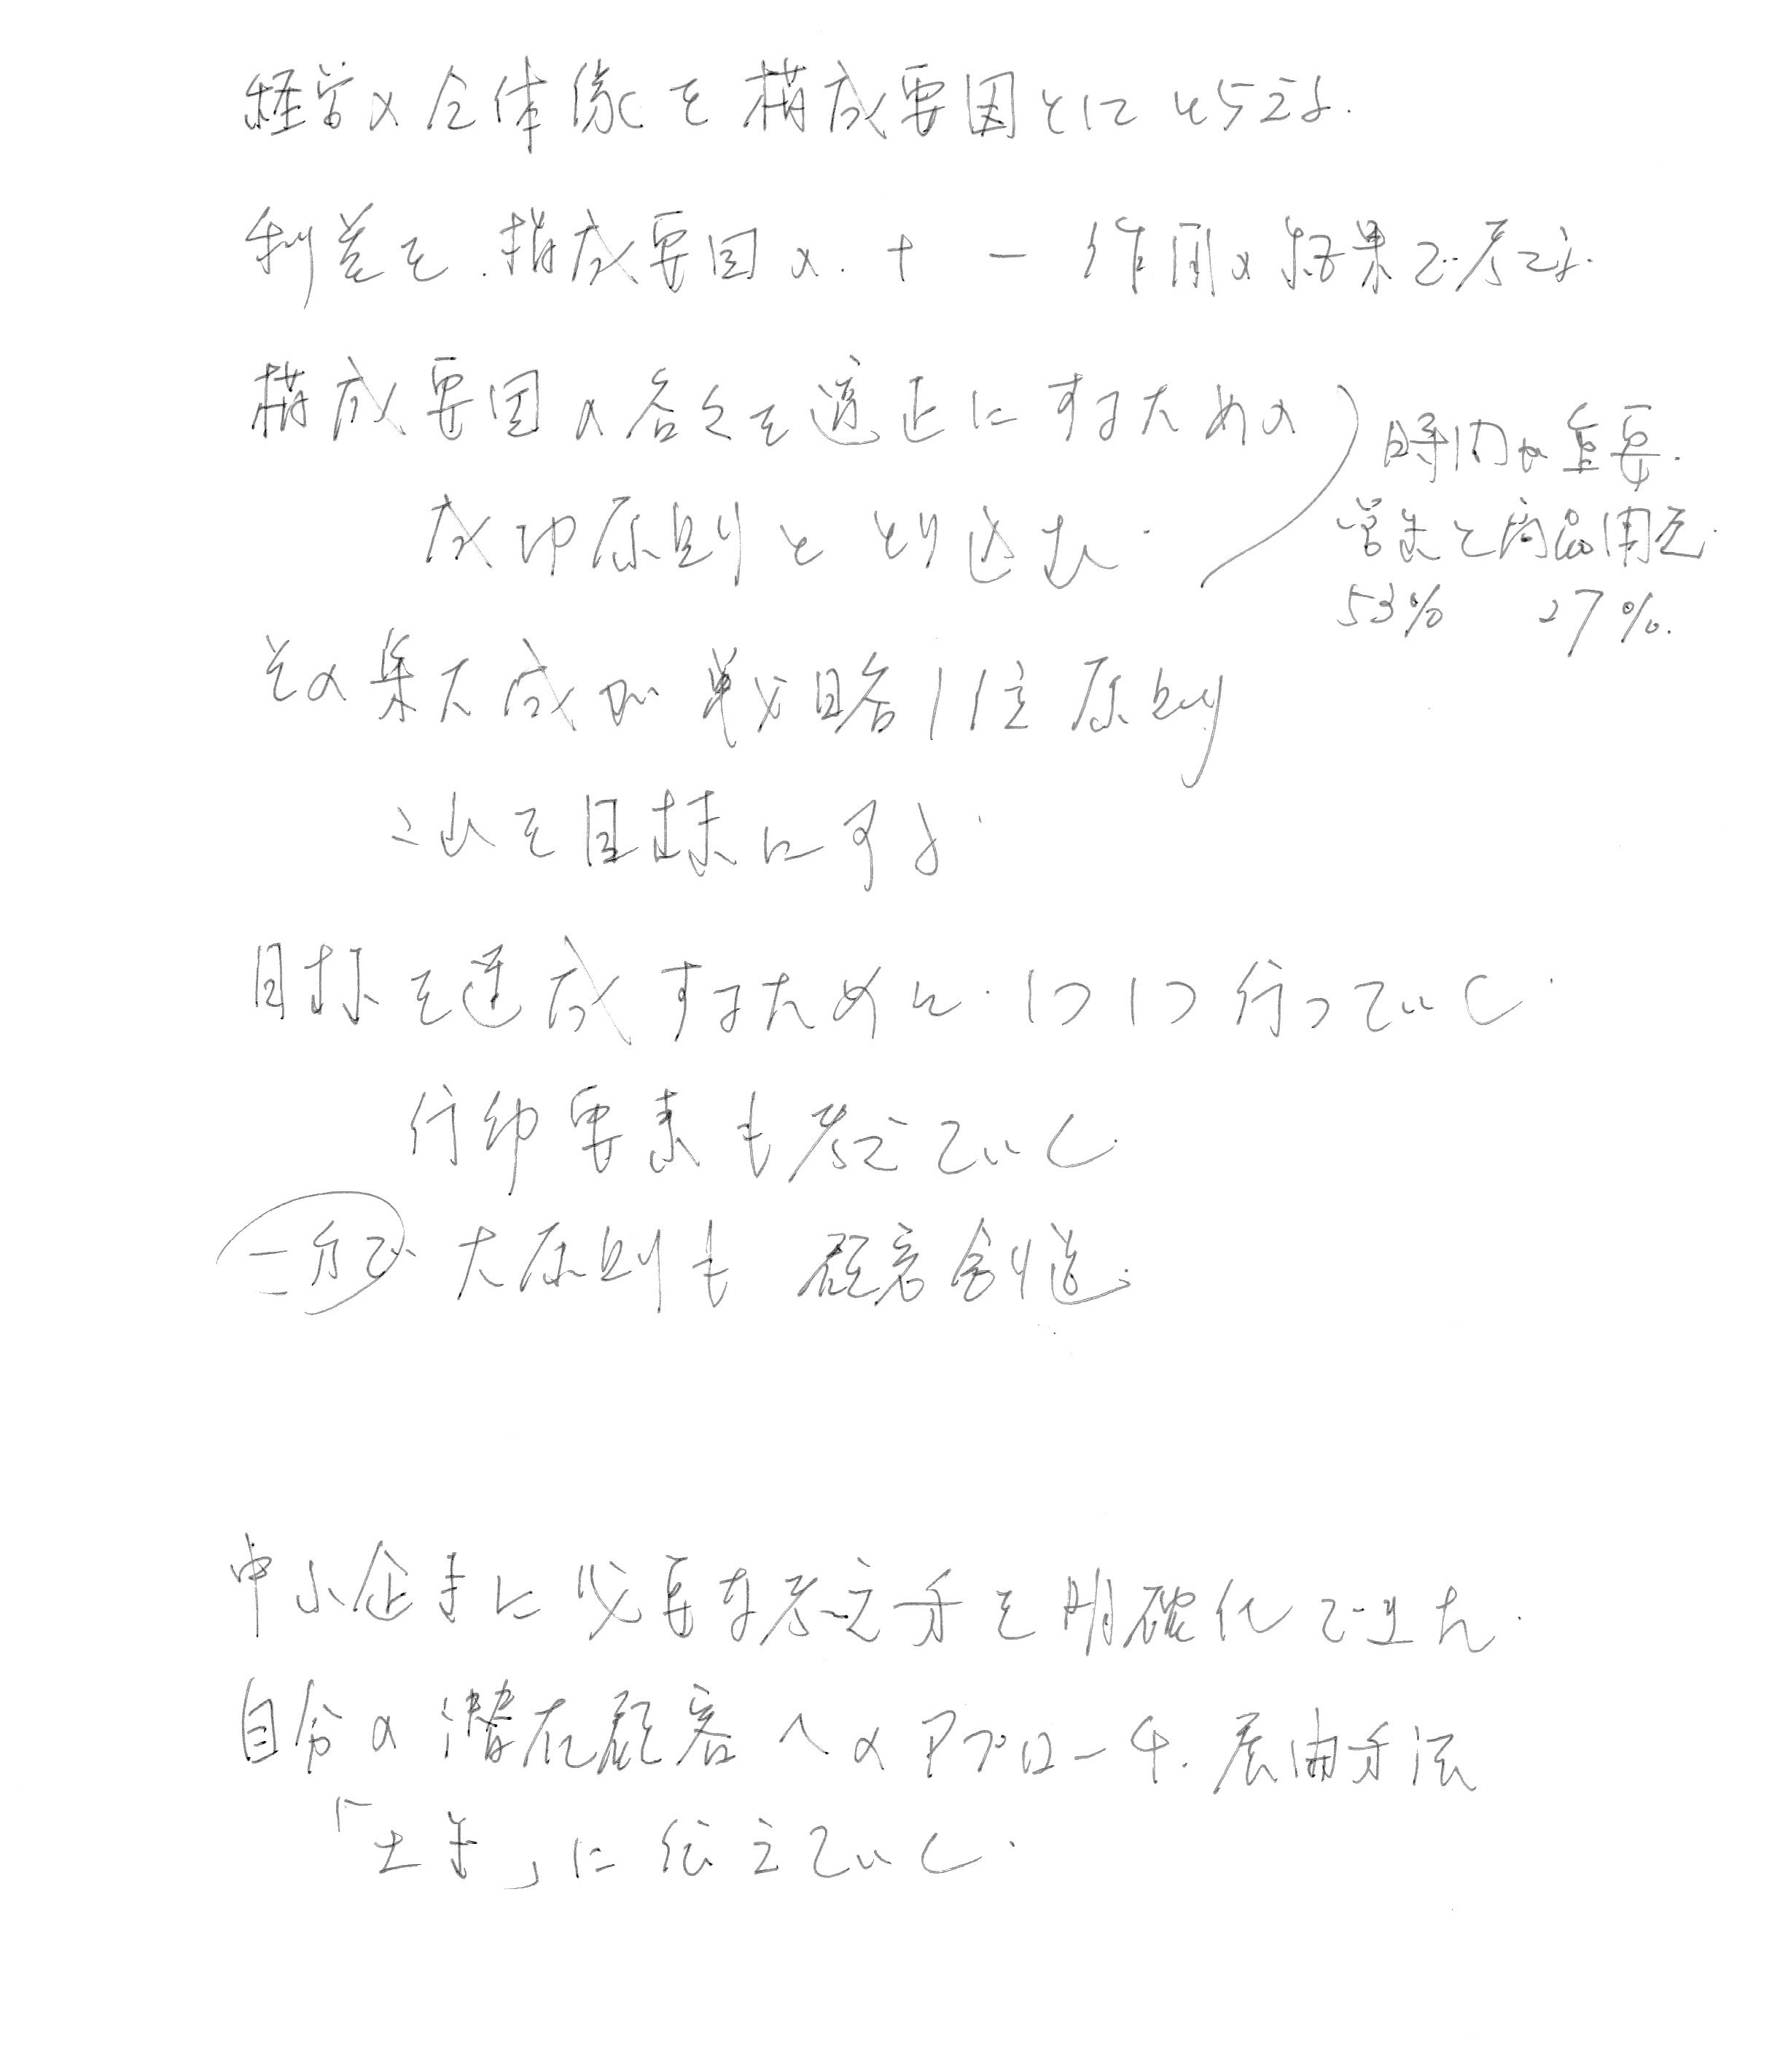 経営の全体像を構成要因ごとにとらえる.
利益を.構成要因の.+ - 作用の結果で考える.
構成要因の各々を適正にするための
成功原則ととり込む.
時間が重要.
営業と商品開発.
53% 27%.
その集大成が戦略1位原則
これを目標にする.
目標を達成するために.1つ1つ行っていく.
行動要素も考えていく.
一方で 大原則も 顧客創造.
中小企業に必要な考え方を明確化できた.
自分の潜在顧客へのアプローチ.展開方法
「　　」に伝えていく.